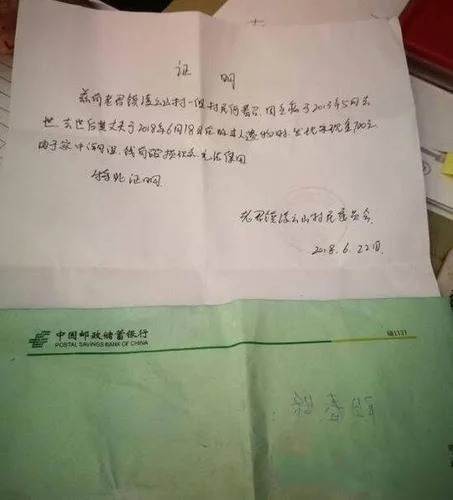 证 明
兹有老君镇凌云山村一组村民何 因 于2013年5月去
世,去世后其丈夫于2018年6月18日 本人遗物时, 发现现金700元
由于家中潮湿,钱币 无法使用
特此证明.
老君镇凌云山村民委员会.
2018.6.22日.
中国邮政储蓄银行
POSTAL SAVINGS BANK OF CHINA